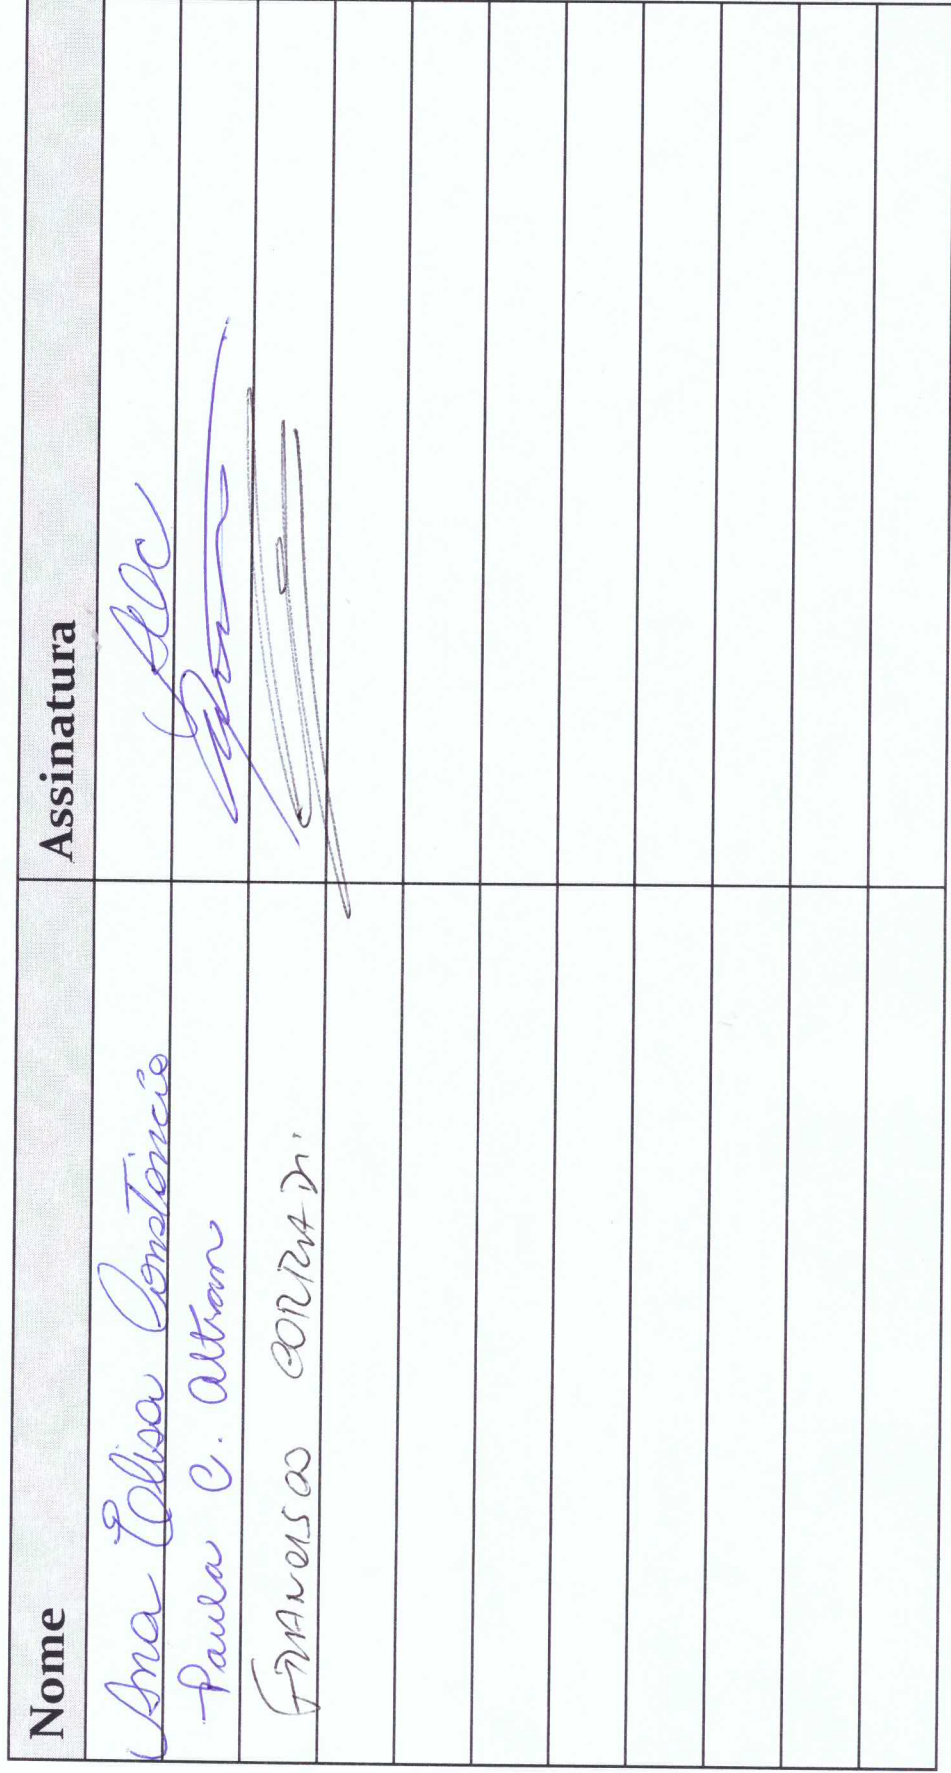 Nome Assinatura
Ana Elisa Constâncio AEC
Paula C. Altran
Francisco CORRADI